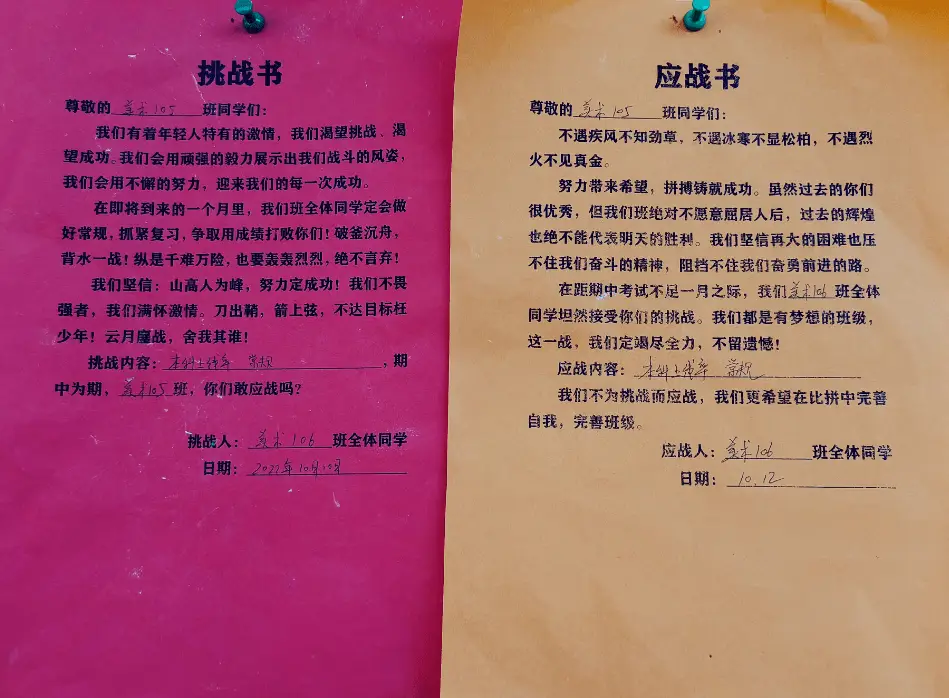 挑战书
尊敬的 美术105 班同学们：
我们有着年轻人特有的激情，我们渴望挑战、渴
望成功。我们会用顽强的毅力展示出我们战斗的风姿，
我们会用不懈的努力，迎来我们的每一次成功。
在即将到来的一个月里，我们班全体同学定会做
好常规，抓紧复习，争取用成绩打败你们！破釜沉舟，
背水一战！纵是千难万险，也要轰轰烈烈，绝不言弃！
我们坚信：山高人为峰，努力定成功！我们不畏
强者，我们满怀激情。刀出鞘，箭上弦，不达目标枉
少年！云月鏖战，舍我其谁！
挑战内容：本科上线率 常规，期
中为期，美术105班，你们敢应战吗？
挑战人：美术106 班全体同学
日期：2022年10月12日
应战书
尊敬的 美术105 班同学们：
不遇疾风不知劲草，不遇冰寒不显松柏，不遇烈
火不见真金。
努力带来希望，拼搏铸就成功。虽然过去的你们
很优秀，但我们班绝对不愿意屈居人后，过去的辉煌
也绝不能代表明天的胜利。我们坚信再大的困难也压
不住我们奋斗的精神，阻挡不住我们奋勇前进的路。
在距期中考试不足一月之际，我们美术106 班全体
同学坦然接受你们的挑战。我们都是有梦想的班级，
这一战，我们定竭尽全力，不留遗憾！
应战内容：本科上线率 常规
我们不为挑战而应战，我们更希望在比拼中完善
自我，完善班级。
应战人：美术106 班全体同学
日期：10.12